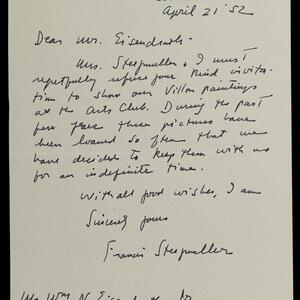 April 21 '52
Dear Mr. Eisendrath -
Mrs. Steegmuller & I must
regretfully refuse your kind invita-
tion to show our Villon paintings
at the Arts Club. During the past
few years these pictures have
been loaned so often that we
have decided to keep them with us
for an indefinite time.
With all good wishes, I am
Sincerely yours
Francis Steegmuller
Mr. Wm N. Eisendrath, Jr